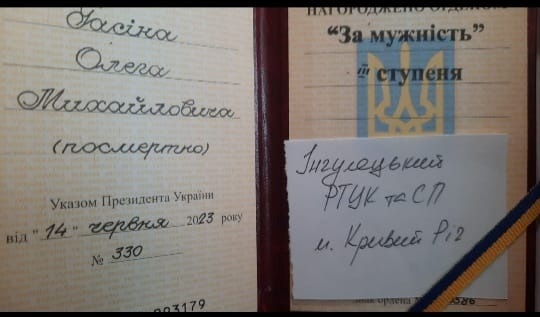 Гасіна
Олега
Михайловича
(посмертно)
Указом Президента України
від "14" червня 2023 року
№ 330
НАГОРОДЖЕНО ОРДЕНОМ
"За мужність"
III ступеня
Інгулецький
РТЦК та СП
м. Кривий Ріг
знак ордена